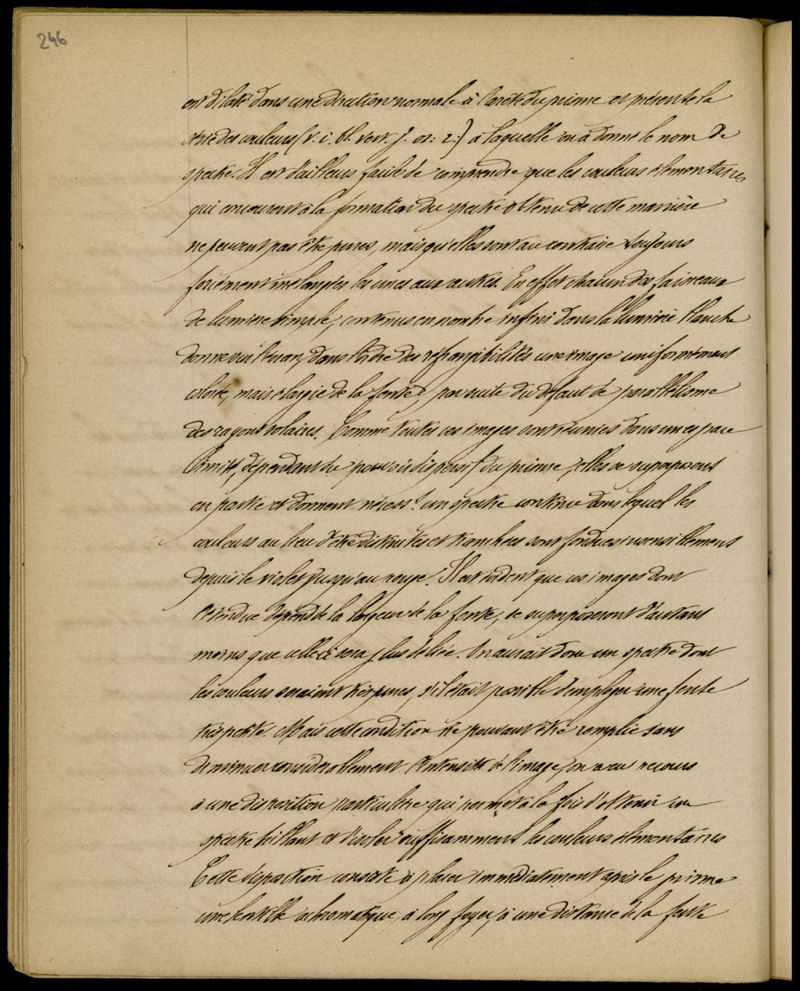 246
est dilaté dans une direction normale à l'arête du prisme et présente la
série des couleurs (v. i. bl. vert. j. or. r.) à laquelle on a donné le nom de
spectre. Il est d'ailleurs facile de comprendre que les couleurs élémentaires
qui concourent à la formation du spectre obtenu de cette manière
ne peuvent pas être pures, mais qu'elles sont au contraire toujours
forcément mélangées les unes aux autres. En effet chacun des faisceaux
de lumière simple, contenus en nombre infini dans la lumière blanche
donne sur l'écran, dans l'ordre des réfrangibilités une image uniformément
colorée, mais élargie de la fente par suite du défaut de parallélisme
des rayons solaires. Comme toutes ces images sont réunies dans un espace
limité, dépendant du pouvoir dispersif du prisme, elles se superposent
en partie et donnent nécess.t un spectre continu dans lequel les
couleurs au lieu d'être distinctes et tranchées sont fondues insensiblement
depuis le violet jusqu'au rouge. Il est évident que ces images dont
l'étendue dépend de la largeur de la fente, se superposeront d'autant
moins que celle-ci sera plus déliée. On aurait donc un spectre dont
les couleurs seraient très pures, s'il était possible d'employer une fente
très petite. Mais cette condition ne pouvant être remplie sans
diminuer considérablement l'intensité de l'image, on a eu recours
à une disposition particulière qui permet à la fois d'obtenir un
spectre brillant et d'isoler suffisamment les couleurs élémentaires
Cette disposition consiste à placer immédiatement après le prisme
une lentille achromatique, à long foyer, à une distance de la fente